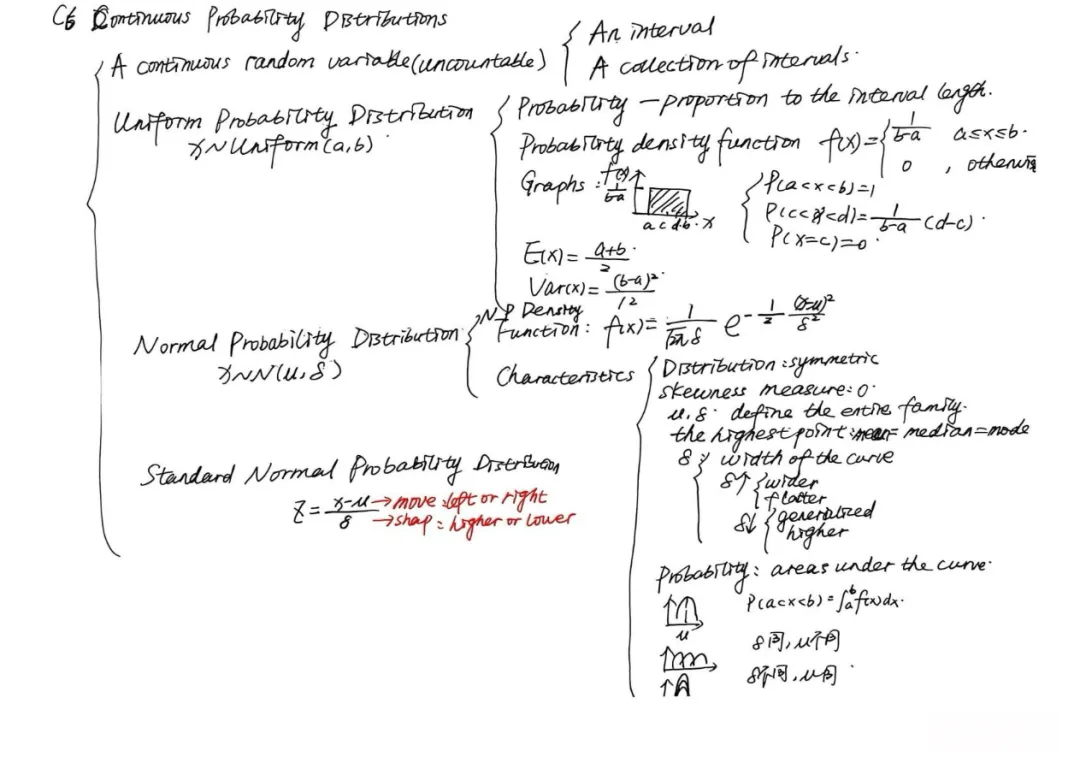 C6 Continuous Probability Distributions
A continuous random variable(uncountable)
An interval
A collection of intervals.
Uniform Probability Distribution
x~Uniform(a,b)
Probability — proportion to the interval length.
Probability density function f(x)= 1/(b-a) a≤x≤b.
0 , otherwise
Graphs : f(x)
1/(b-a)
a c d b x
P(a<x<b)=1
P(c<x<d)= 1/(b-a) (d-c).
P(x=c)=0.
E(x)= (a+b)/2
Var(x)= (b-a)²/12
Normal Probability Distribution
x~N(μ,δ)
N P Density
Function: f(x)= 1/(√2π δ) e^(-1/2 (x-μ)²/δ²)
Characteristics
Distribution:symmetric
skewness measure:0.
μ,δ. define the entire family.
the highest point:mean=median=mode
δ: width of the curve
δ↑ wider
flatter
δ↓ generalized
higher
Probability: areas under the curve.
P(a<x<b)=∫ₐᵇf(x)dx.
μ
δ同,μ不同
δ不同,μ同
Standard Normal Probability Distribution
Z= (x-μ)/δ
→move:left or right
→shap:higher or lower